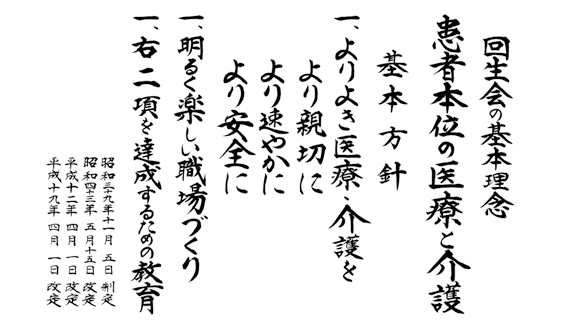 回生会の基本理念
患者本位の医療と介護
基本方針
一、よりよき医療、介護を
より親切に
より速やかに
より安全に
一、明るく楽しい職場づくり
一、右二項を達成するための教育
昭和三十九年十一月 五日 制定
昭和四十三年 五月十五日 改定
平成十二年 四月 一日 改定
平成十九年 四月 一日 改定